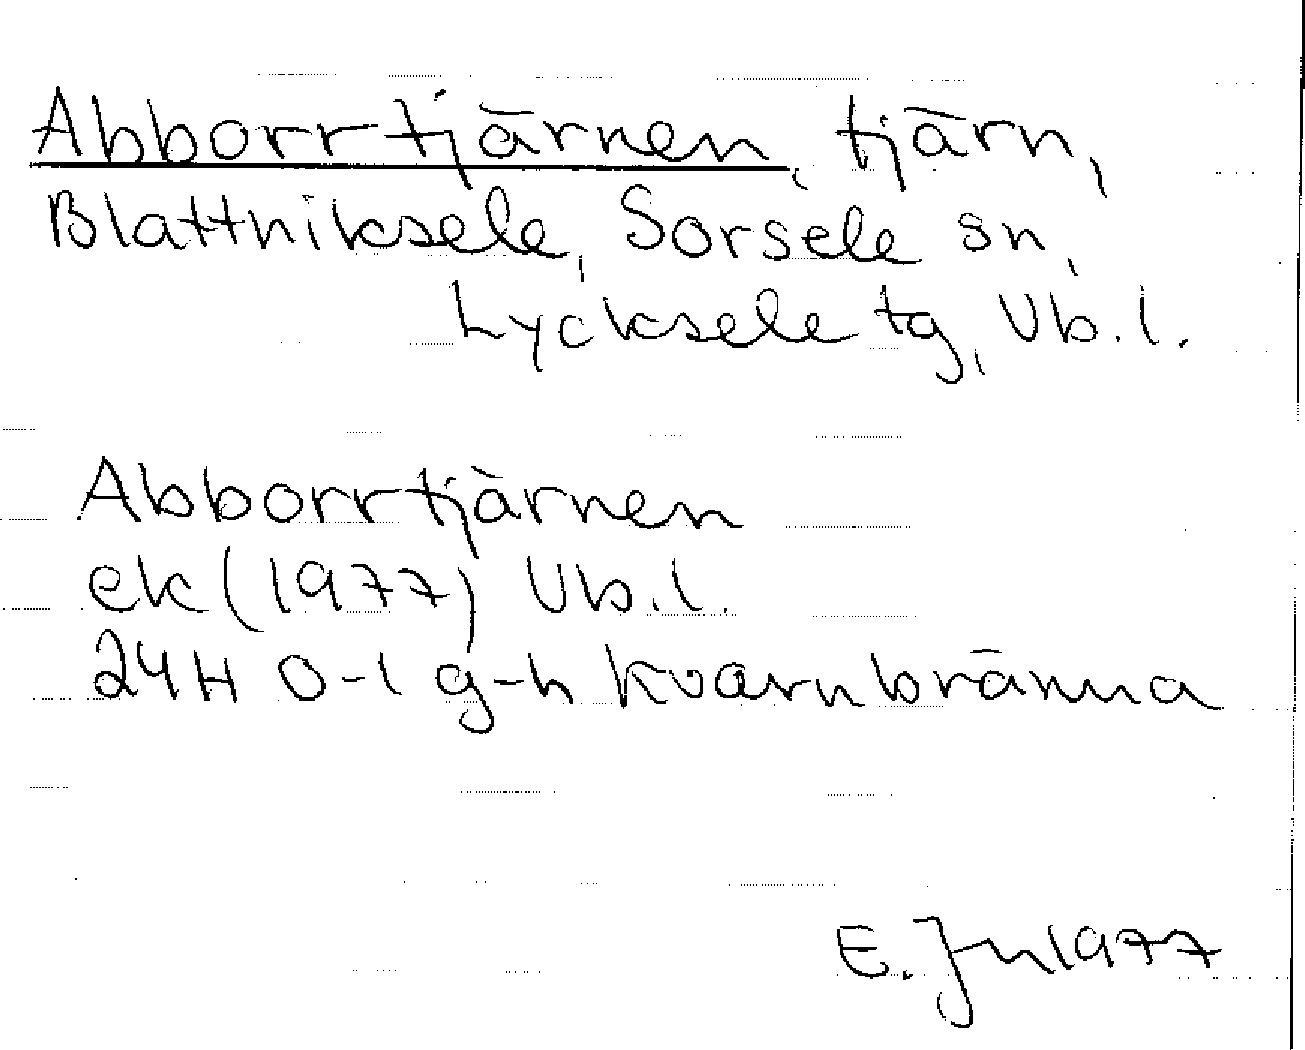 Abborrtjärnen, tjärn,
Blattniksele, Sorsele sn,
Lycksele tg, Vb.l.
Abborrtjärnen
ek (1977) Vb.l.
24H 0-1 g-h Kvarnbränna
E. Jn 1977